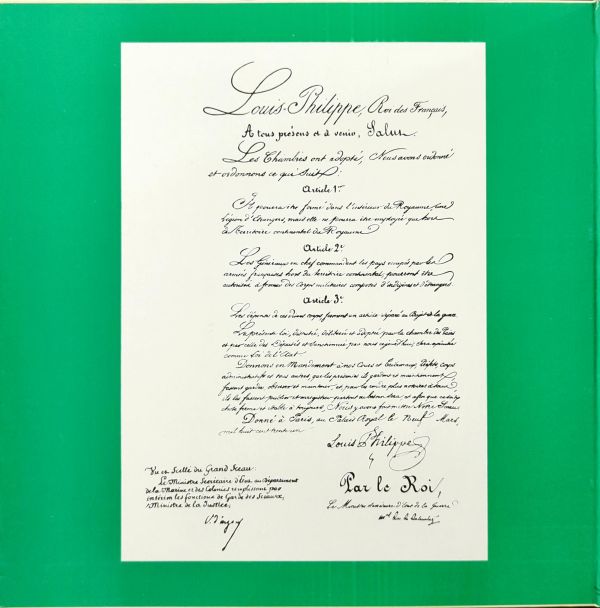 Louis-Philippe, Roi des Français,
A tous présens et à venir, Salut.
Les Chambres ont adopté, Nous avons ordonné
et ordonnons ce qui suit:
Article 1er
Il pourra être formé dans l'intérieur du Royaume, une
Légion d'Etrangers, mais elle ne pourra être employée que hors
du Territoire continental du Royaume
Article 2e
Les Généraux en chef commandant les pays occupés par les
armées françaises hors du territoire continental, pourront être
autorisés à former des Corps militaires composés d'indigènes et d'étrangers.
Article 3e
Les dépenses de ces divers corps formeront un article séparé au Budget de la guerre.
La présente loi, discutée, délibérée et adoptée par la chambre des Pairs
et par celle des Députés et Sanctionnée par nous cejourd'hui, sera exécutée
comme Loi de l'Etat.
Donnons en Mandement à nos Cours et Tribunaux, Préfets, Corps
administratifs et tous autres que les présentes ils gardent et maintiennent,
fassent garder, observer et maintenir, et, pour les rendre plus notoires à tous,
ils les fassent publier et enregistrer partout où besoin sera, et afin que ce soit
chose ferme et stable à toujours, Nous y avons fait mettre Notre Sceau.
Donné à Paris, au Palais Royal le Neuf Mars,
mil huit cent trente un
Louis Philippe
Vu et Scellé du Grand Sceau:
Le Ministre Secrétaire d'Etat au Département
de la Marine et des Colonies remplissant par
intérim les fonctions de Garde des Sceaux,
Ministre de la Justice,
Par le Roi,
Le Ministre Secrétaire d'Etat de la Guerre